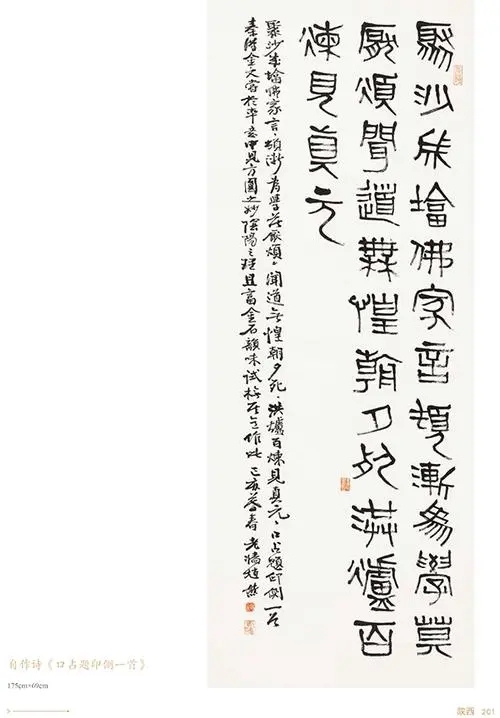 聚沙成塔佛家言頓漸為學莫
厭煩聞道無惶朝夕死洪爐百
煉見真元
聚沙成塔佛家言，頓漸為學莫厭煩。聞道無惶朝夕死，洪爐百煉見真元。口占題印側一首
金文當於平意中見方圓之妙陰陽之理且富金石韻味試 作此 己亥暮春 老墻趙熊
自作诗《口占题印侧一首》
175cm×69cm
陕西 201